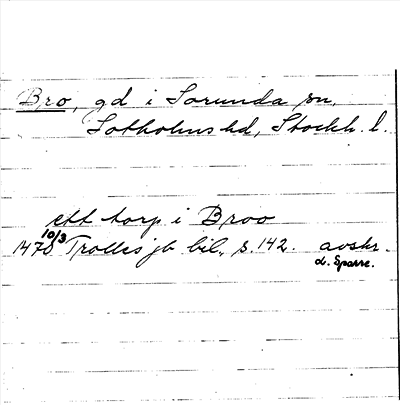 Bro, gd i Sorunda sn,
Sotholms hd, Stockh. l.
ett torp i Broo
1470 10/3 Trolles jb bil., s. 142. avskr.
d. Sparre.